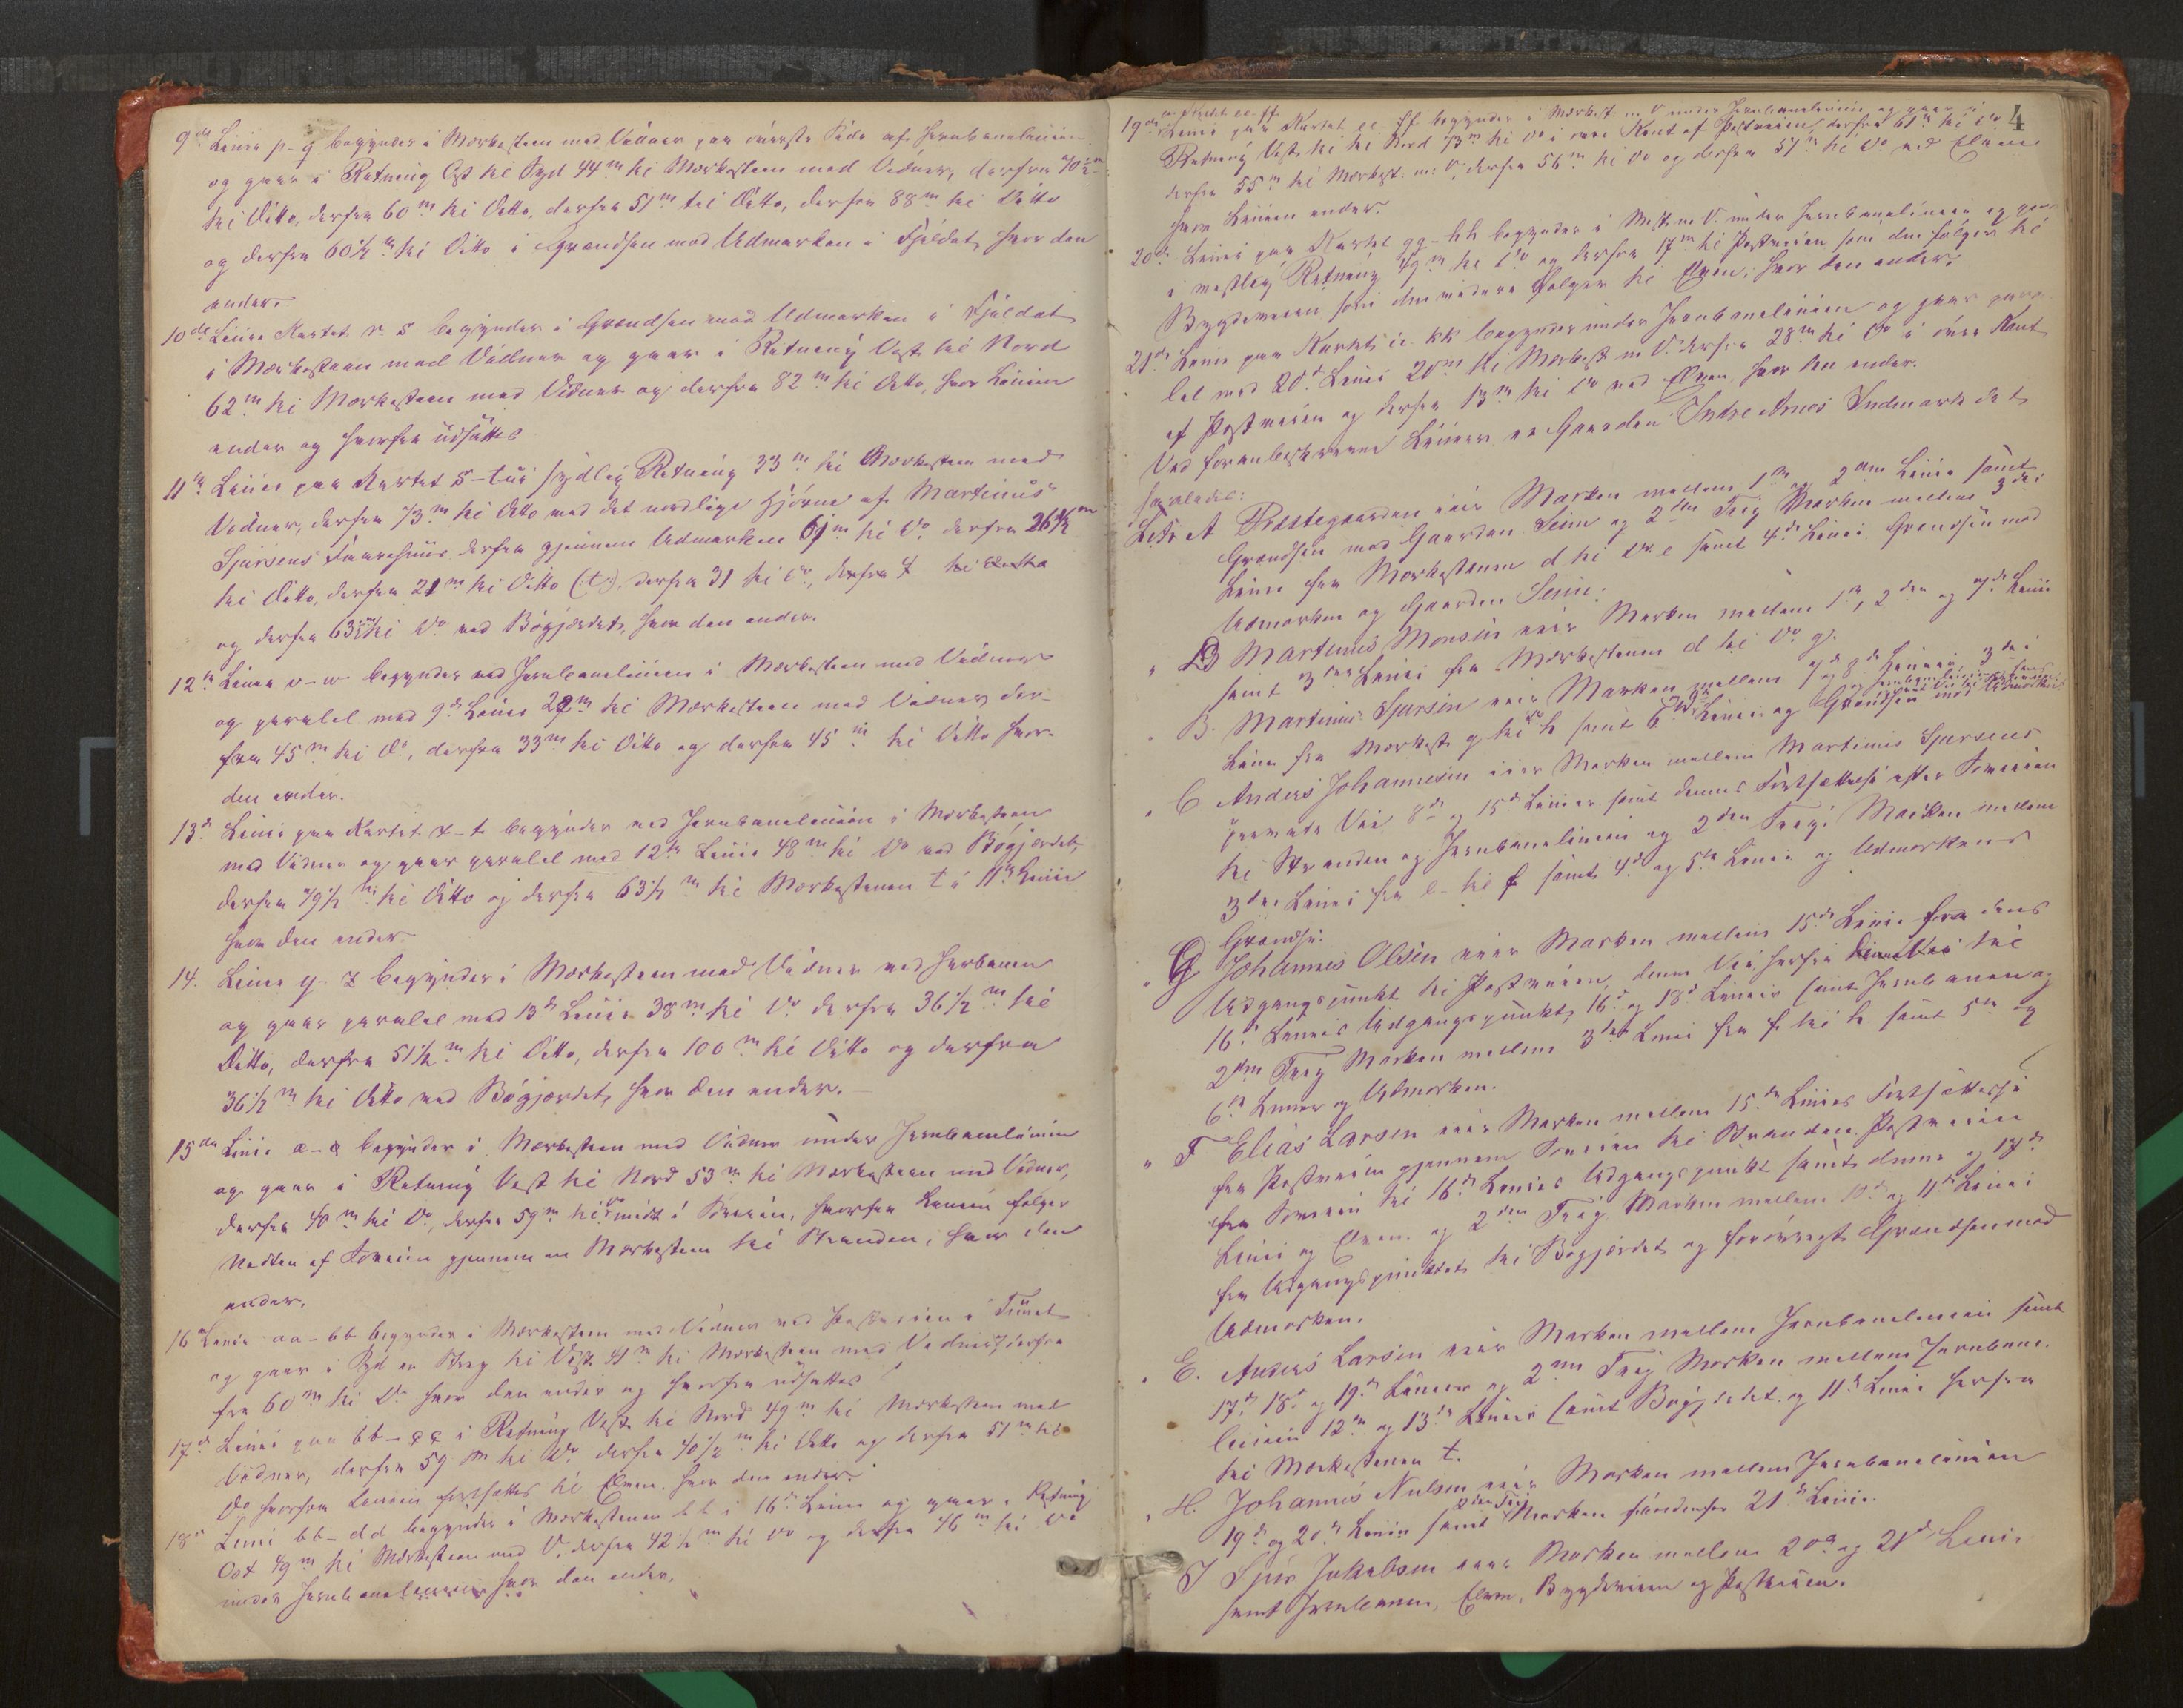 9de Linie p-q begynder i Merkesteen med Vidner paa øverste Side af Jernbanelinien
og gaar i Retning Ost til Syd 44 m til Merkesteen med Vidner, derfra 70½ m
til Ditto, derfra 60 m til Ditto, derfra 51 m til Ditto, derfra 88 m til Ditto
og derfra 60½ m til Ditto i Grændsen mod Udmarken i Fjeldet, hvor den
ender.
10de Linie Kartet r-s begynder i Grændsen mod Udmarken i Fjeldet
i Merkesteen med Vidner og gaar i Retning Vest til Nord
62 m til Merkesteen med Vidner og derfra 82 m til Ditto, hvor Linien
ender og hvorfra udsættes
11te Linie paa Kartet s-t i sydlig Retning 33 m til Merkesteen med
Vidner, derfra 73 m til Ditto ved det nordlige Hjørne af Martinus
Sjursens derfra gjennem Udmarken 61 m til Do derfra 26½ m
til Ditto, derfra 21 m til Ditto (t), derfra 31 til Do, derfra 4 til
og derfra 63½ m til Do ved Bøgjærdet, hvor den ender.
12te Linie v-w begynder ved Jernbanelinien i Merkesteen med Vidner
og paralel med 9de Linie 22 m til Merkesteen med Vidner, der-
fra 45 m til Do, derfra 33 m til Ditto og derfra 45 m til Ditto hvor
den ender.
13de Linie paa Kartet x-t begynder ved Jernbanelinien i Merkesteen
med Vidner og gaar paralel med 12te Linie 48 m til Do ved Bøgjerdet,
derfra 79½ m til Ditto og derfra 63½ m til Merkestenen t i 11te Linie
hvor den ender
14. Linie y-z begynder i Merkesteen med Vidner ved Jernbanen
og gaar paralel med 13de Linie 38 m til Do derfra 36½ m til
Ditto, derfra 51½ m til Ditto, derfra 100 m til Ditto og derfra
36½ m til Ditto ved Bøgjærdet, hvor den ender.
15de Linie begynder i Merkesteen med Vidner under Jernbanelinien
og gaar i Retning Vest til Nord 53 m til Merkesteen med Vidner,
derfra 40 m til Do, derfra 59 m til Do midt i, hvorfra Linien følger
Midten af gjennem en Merkesteen til Stranden, hvor den
ender.
16 Linie aa-bb begynder i Merkesteen med Vidner ved Postveien i Tunet
og gaar i Syd en Streg til Vest 41 m til Merkesteen med Vidner, derfra
fra 60 m til Do hvor den ender og hvorfra udsættes
17de Linie paa bb-cc i Retning Vest til Nord 49 m til Merkesteen med
Vidner, derfra 59 m til Do derfra 40½ m til Ditto og derfra 51 m til
Do hvorfra Linien fortsættes til Elven, hvor den ender.
18de Linie bb-dd begynder i Merkestenen bb i 16de Linie og gaar i Retning
Ost 49 m til Merkesteen med V, derfra 42½ m til Do og derfra 46 m til Do
under Jernbanelinien hvor den ender.
4
19de Linie paa Kartet ee-ff begynder i Merkest. m. V. under Jernbanelinien og gaar i
Retning Vest til Nord 73 m til Do i øvre Kant af Postveien, derfra 61 m til Do
derfra 55 m til Merkest. m. V, derfra 56 m til Do og derfra 51 m til Do ved Elven
hvor Linien ender.
20de Linie paa Kartet gg-hh begynder i Mst. m V. under Jernbanelinien og gaar
i vestlig Retning 49 m til Do og derfra 17 m til Postveien som den følger til
Bygdeveien som den videre følger til Elven, hvor den ender.
21de Linie paa Kartet ii-kk begynder under Jernbanelinien og gaar para-
lel med 20de Linie 20 m til Merkest. m V. derfra 28 m til Do i øvre Kant
af Postveien og derfra 13 m til Do ved Elven, hvor den ender.
Ved foranbeskrevne Linier er Gaarden Indre Arnes Indmark delt
saaledes:
Litr A Præstegaarden eier Marken mellem 1ste og 2den Linie samt
Grændsen mod Gaarden Seim og 2den Teig Marken mellem 3die
Linie fra Merkestenen d til Do e samt 4de Linie Grændsen mod
Udmarken og Gaarden Seim.
" D Martinus Monsen eier Marken mellem 1ste, 2den og 7de Linie
samt 3die Linie fra Merkestenen d til Do g.
" B. Martinus Sjursen eier Marken mellem 7de og 8de Linien, 3die
Linie fra Merkest. g til Do h samt 6te Linie og Grændsen mod Udmarken
" C Anders Johannesen eier Marken mellem Martinus Sjursens
private Vei 8de og 15de Linier samt dennes Fortsættelse efter
til Stranden og Jernbanelinien og 2den Teig: Marken mellem
3die Linie fra e til f samt 4de og 5te Linie og Udmarkens
Grændse.
" G Johannes Olsen eier Marken mellem 15de Linie fra dens
Udgangspunkt til Postveien, denne Vei herfra til
16de Linies Udgangspunkt, 16de og 18de Linier samt Jernbanen og
2den Teig Marken mellem 3die Linie fra f til h samt 5te og
6te Linier og Udmarken.
" F Elias Larsen eier Marken mellem 15de Linies Fortsættelse
fra Postveien gjennem til Stranden, Postveien
fra til 16de Linies Udgangspunkt samt denne og 17de
Linie og Elven og 2den Teig Marken mellem 10de og 11te Linie
fra Udgangspunktet til Bøgjerdet og forøvrigt Grændsen mod
Udmarken.
" E. Anders Larsen eier Marken mellem Jernbanelinien samt
17de, 18de og 19de Linier og 2den Teig Marken mellem Jernbane-
linien 12te og 13de Linier samt Bøgjerdet og 11te Linie herfra
til Merkestenen t.
" H. Johannes Nilsen eier Marken mellem Jernbanelinien
19de og 20de Linie samt 2den Teig Marken søndenfor 21de Linie.
" I Sjur Jakobsen eier Marken mellem 20de og 21de Linie
samt Jernbanen, Elven, Bygdeveien og Postveien.